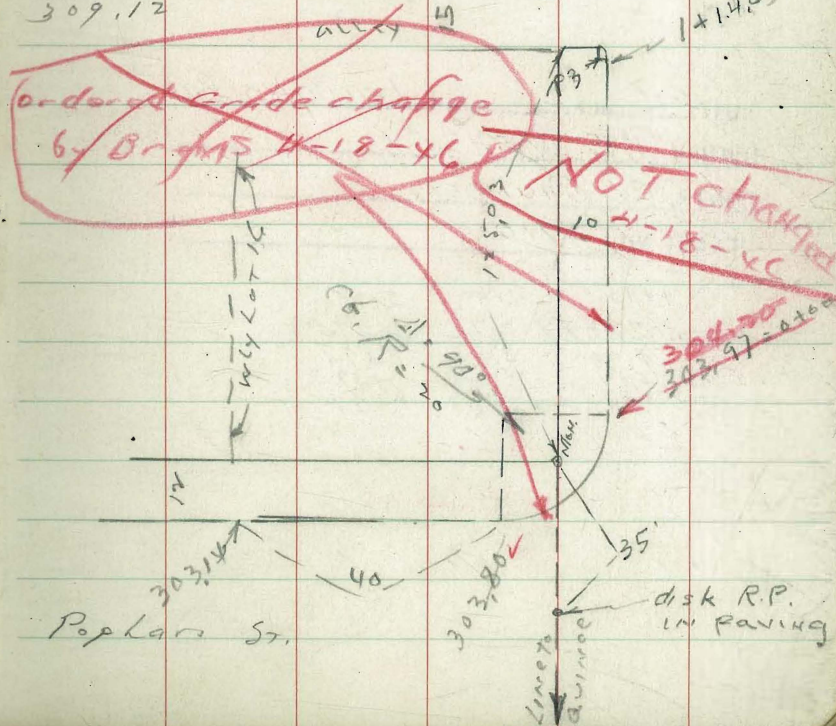 309.12
alley
15
1+14.
P3
ordered Grade change
by Briggs 4-18-46
NOT changed
4-18-46
10
1+5.03
Wly Lot 14
90°
20
304.00
303.97 = 0+00
12
35'
303.14
40
303.80
disk R.P.
in paving
Line to
Quince